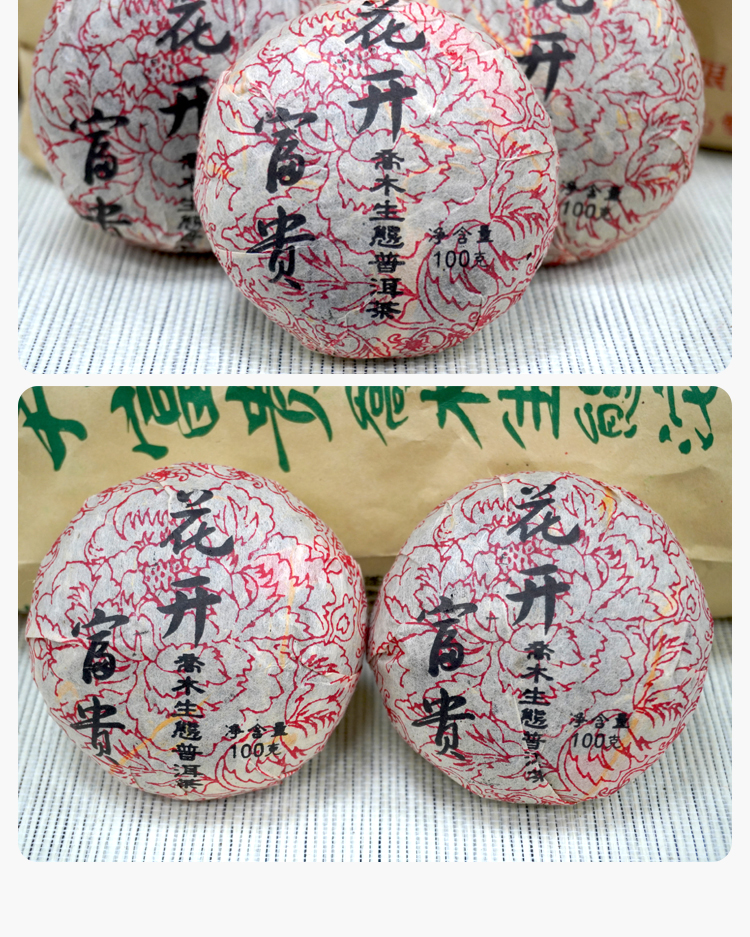 花开
富贵
花开
富贵
喬木生態普洱茶
净含量
100克
开
净含量
100克
富贵喬木生態沱
花开
富贵
喬木生態普洱茶
净含量
100克
花开
富贵
喬木生態普洱茶
净含量
100克